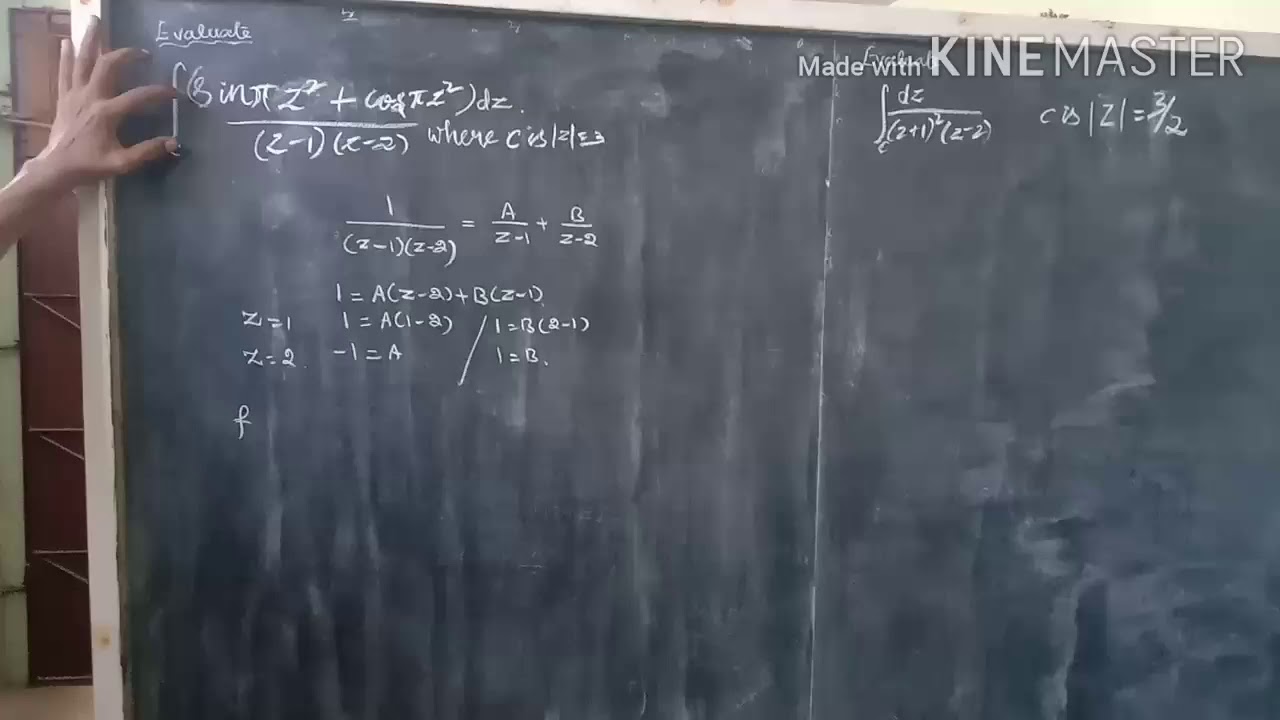 Evaluate
∫(Sinπz² + cosπz²)dz.
(z-1)(z-2) where c is |z|=3
1/((z-1)(z-2)) = A/(z-1) + B/(z-2)
1 = A(z-2) + B(z-1)
z=1 1 = A(1-2) / 1=B(2-1)
z=2. -1 = A / 1=B.
f
Evaluate
Made with KINEMASTER
∫c dz/((z+1)²(z-2)) c is |z| = 3/2